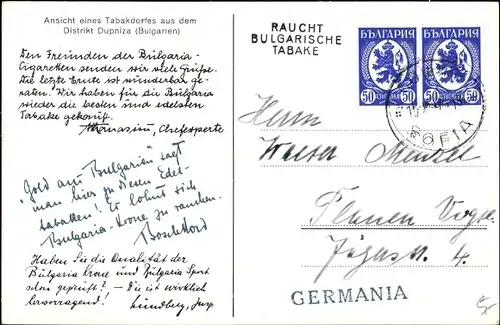 Ansicht eines Tabakdorfes aus dem
Distrikt Dupniza (Bulgarien)
Den Freunden der Bulgaria-
Cigaretten senden wir viele Grüsse.
Die letzte Ernte ist wunderbar ge-
raten. Wir haben für die Bulgaria
wieder die besten und edelsten
Tabake gekauft.
Athanasiu, Chefexperte
"Gold aus Bulgarien" sagt
man hier zu diesen Edel-
tabaken! Es lohnt sich
Bulgaria-Krone zu rauchen.
Haben Sie die Qualität der
Bulgaria Krone und Bulgaria Sport
schon geprüft? – Die ist wirklich
hervorragend!
RAUCHT
BULGARISCHE
TABAKE
БЪЛГАРИЯ
БЪЛГАРИЯ
50 50
50 50
SOFIA
Herrn
Walter
Plauen Vogtl.
4.
GERMANIA